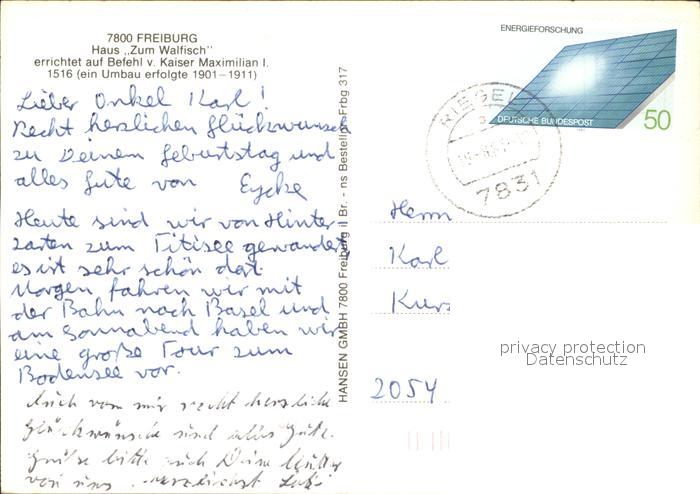 7800 FREIBURG
Haus „Zum Walfisch"
errichtet auf Befehl v. Kaiser Maximilian I.
1516 (ein Umbau erfolgte 1901–1911)
Lieber Onkel Karl!
Recht herzlichen Glückwunsch
zu Deinem Geburtstag und
alles Gute von Eycke
Heute sind wir von Hinter-
zarten zum Titisee gewandert,
es ist sehr schön dat.
Morgen fahren wir mit
der Bahn nach Basel und
am Sonnabend haben wir
eine große Tour zum
Bodensee vor.
Auch von mir recht herzliche
Glückwünsche und alles Gute.
Grüße bitte auch Deine Mutter
von uns
HANSEN GMBH 7800 Freiburg i. Br. - ns Bestellnr. Frbg 317
ENERGIEFORSCHUNG
DEUTSCHE BUNDESPOST
50
RIEGEL
7831
Herrn
Karl
Kurz
privacy protection
Datenschutz
2054